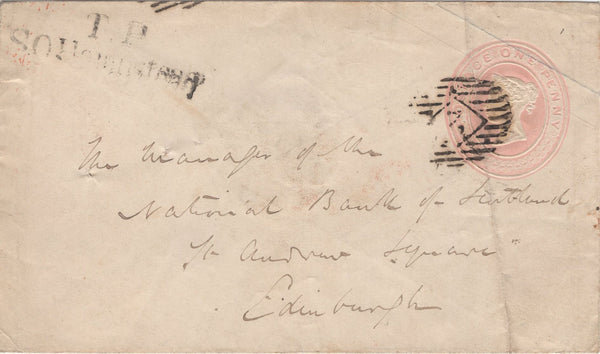 T.P
SO Hampstead
POSTAGE ONE PENNY
The Manager of the
National Bank of Scotland
St Andrew Square
Edinburgh